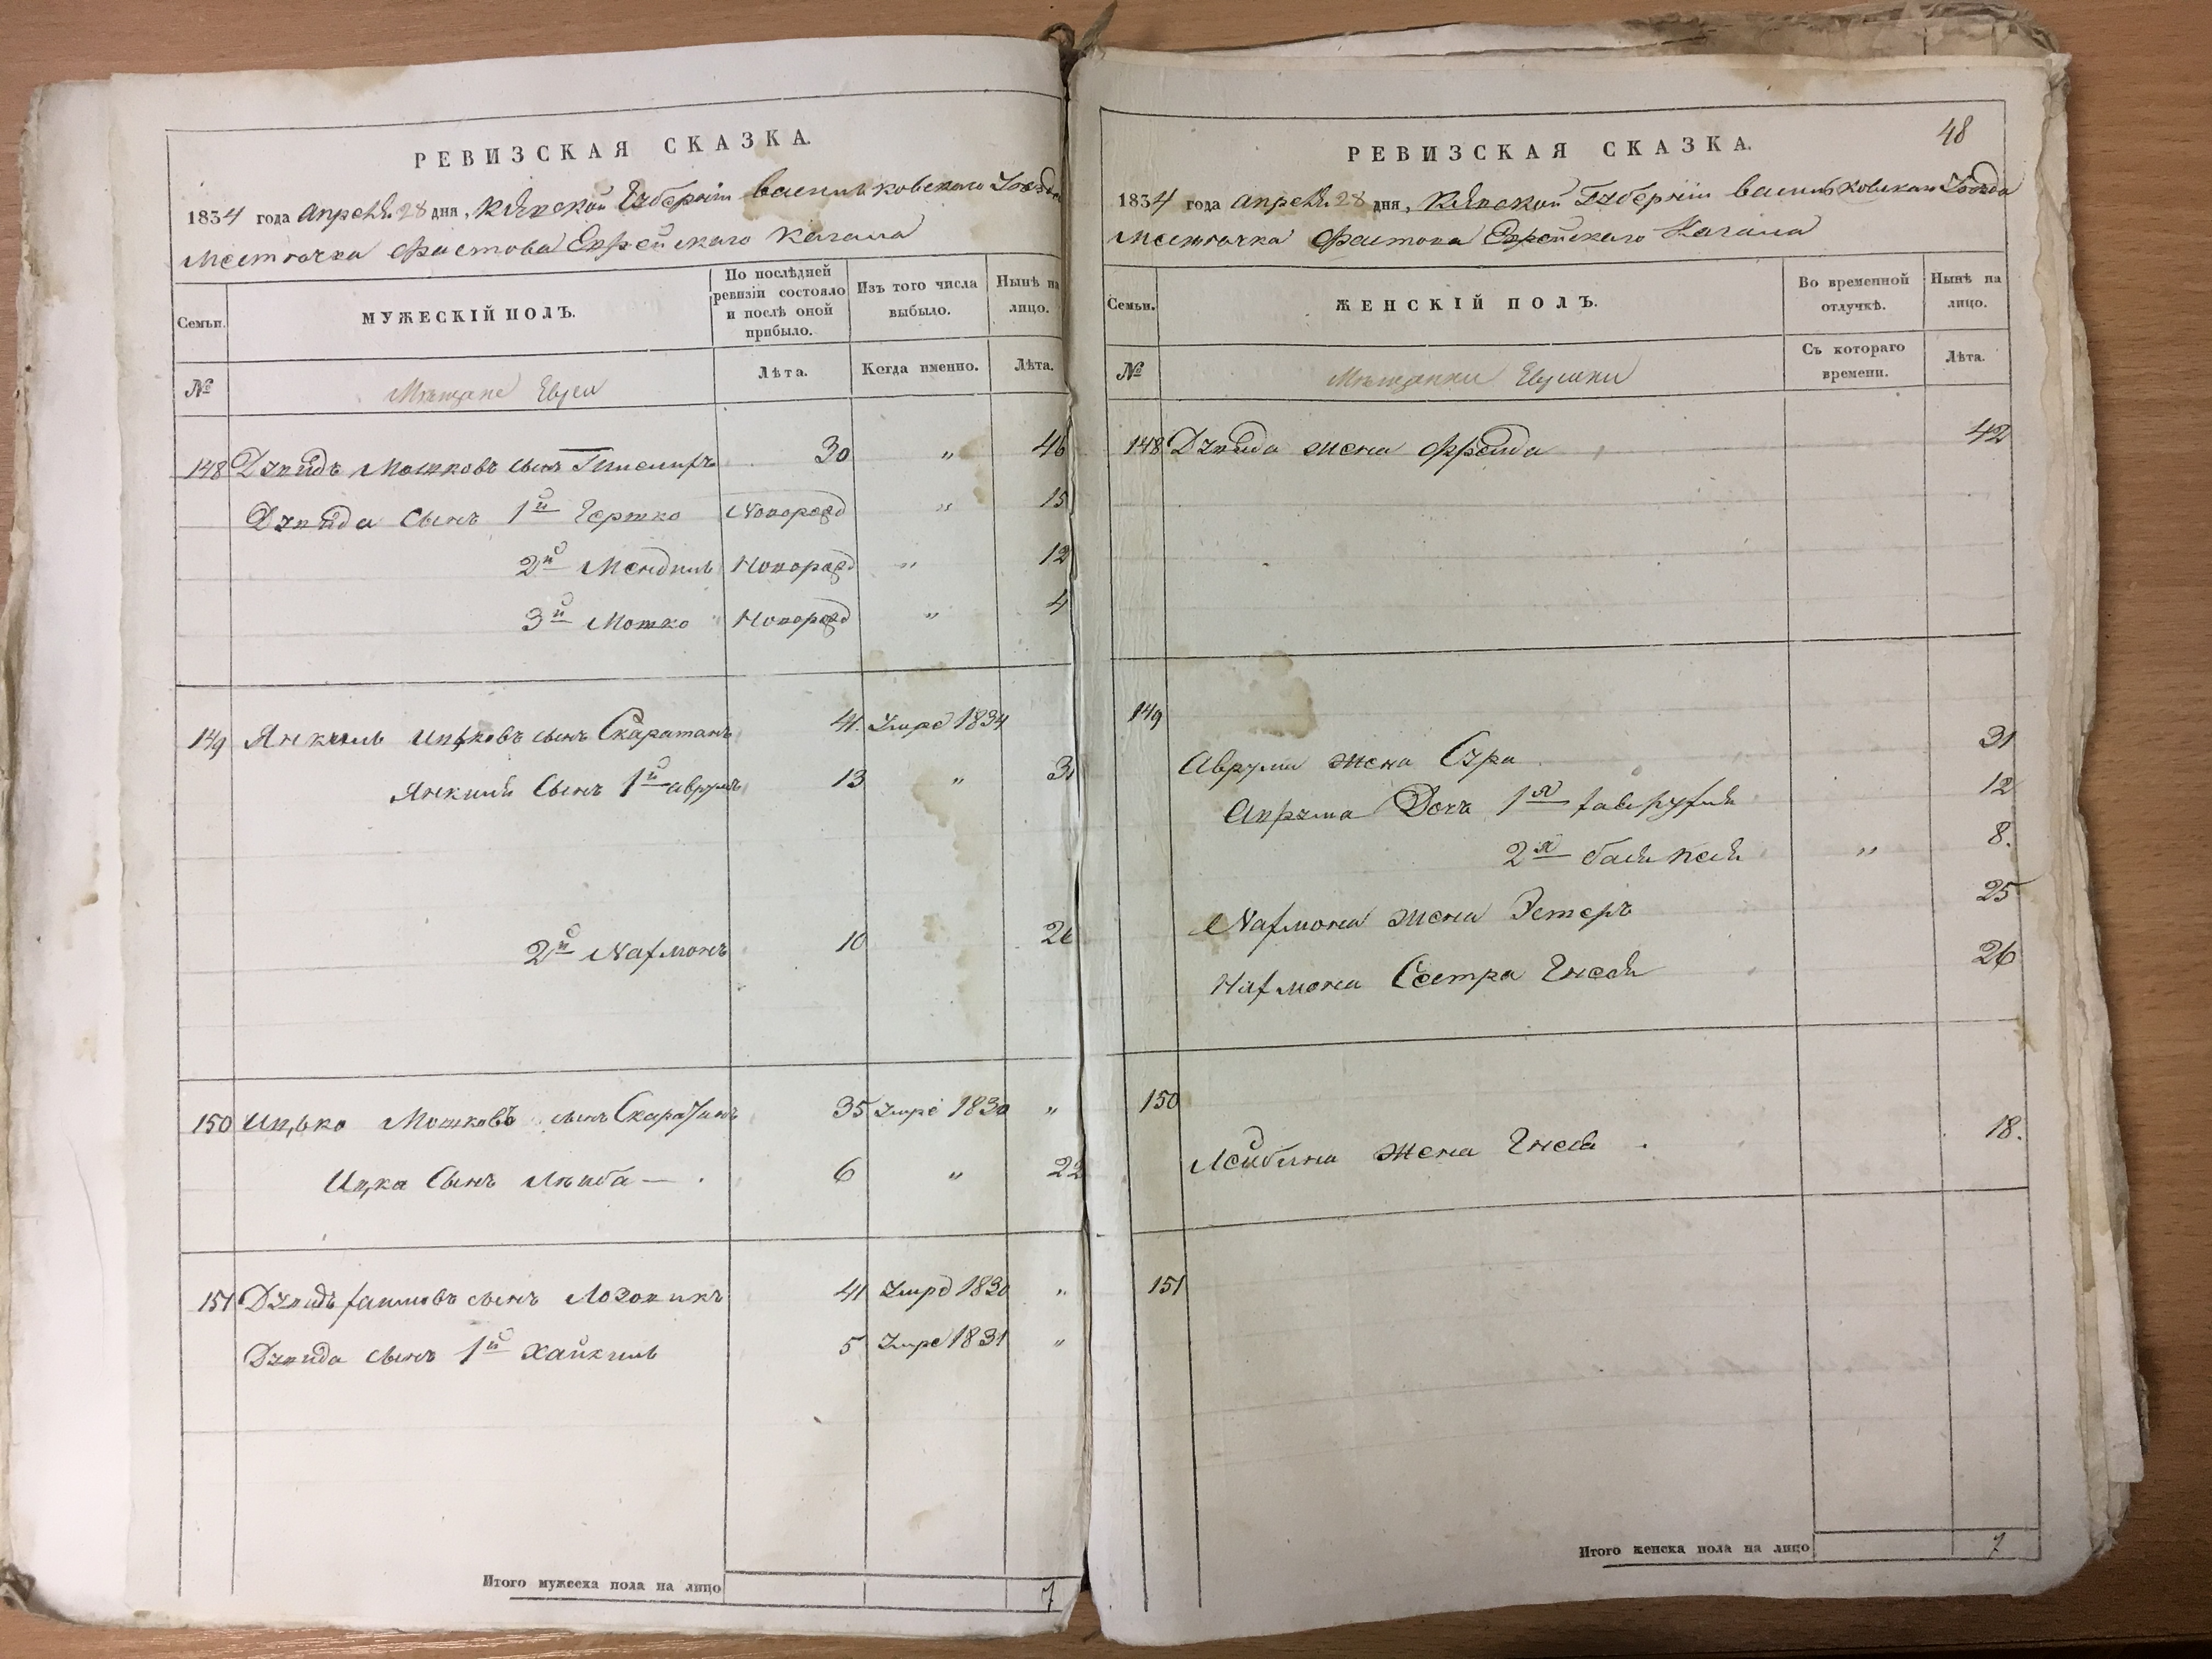 РЕВИЗСКАЯ СКАЗКА.
1834 года апреля 28 дня, Кіевской Губерніи Васильковского Уезда
Местечка Фастова Еврейского Кагала
Семьи.
МУЖЕСКІЙ ПОЛЪ.
По послѣдней ревизіи состояло и послѣ оной прибыло.
Изъ того числа выбыло.
Нынѣ на лицо.
№
Мѣщане Евреи
Лѣта.
Когда именно.
Лѣта.
148 Дувидъ Мошковъ сынъ 30 " 46
Дувида Сынъ 1й Гершко Новорожд " 15
2й Мендиль Новорожд " 12
3й Мошко Новорожд " 4
149 Янкель Ицьковъ сынъ Скаратанъ 41. Умре 1834
Янкиля Сынъ 1й Аврумъ 13 " 31
2й Нафмонъ 10 26
150 Ицько Мошковъ сынъ 35 Умре 1830 "
Ицка Сынъ Лейба — . 6 " 22
151 Дувидъ сынъ Лозовикъ 41 Умре 1830 "
Дувида сынъ 1й Хайкиль 5 Умре 1831 "
Итого мужеска пола на лицо 7
48
РЕВИЗСКАЯ СКАЗКА.
1834 года апреля 28 дня, Кіевской Губерніи Васильковскаго Уезда
Местечка Фастова Еврейскаго Кагала
Семьи.
ЖЕНСКІЙ ПОЛЪ.
Во временной отлучкѣ.
Нынѣ на лицо.
№
Мѣщанки Еврейки
Съ котораго времени.
Лѣта.
148 Дувида жена Фрейда 42
149
Аврума жена Сура 31
Аврума Дочь 1я 12
2я " 8.
Нафмона жена Эстеръ 25
Нафмона Сестра Гнеся 26
150
Лейбина жена Гнеся 18.
151
Итого женска пола на лицо 7